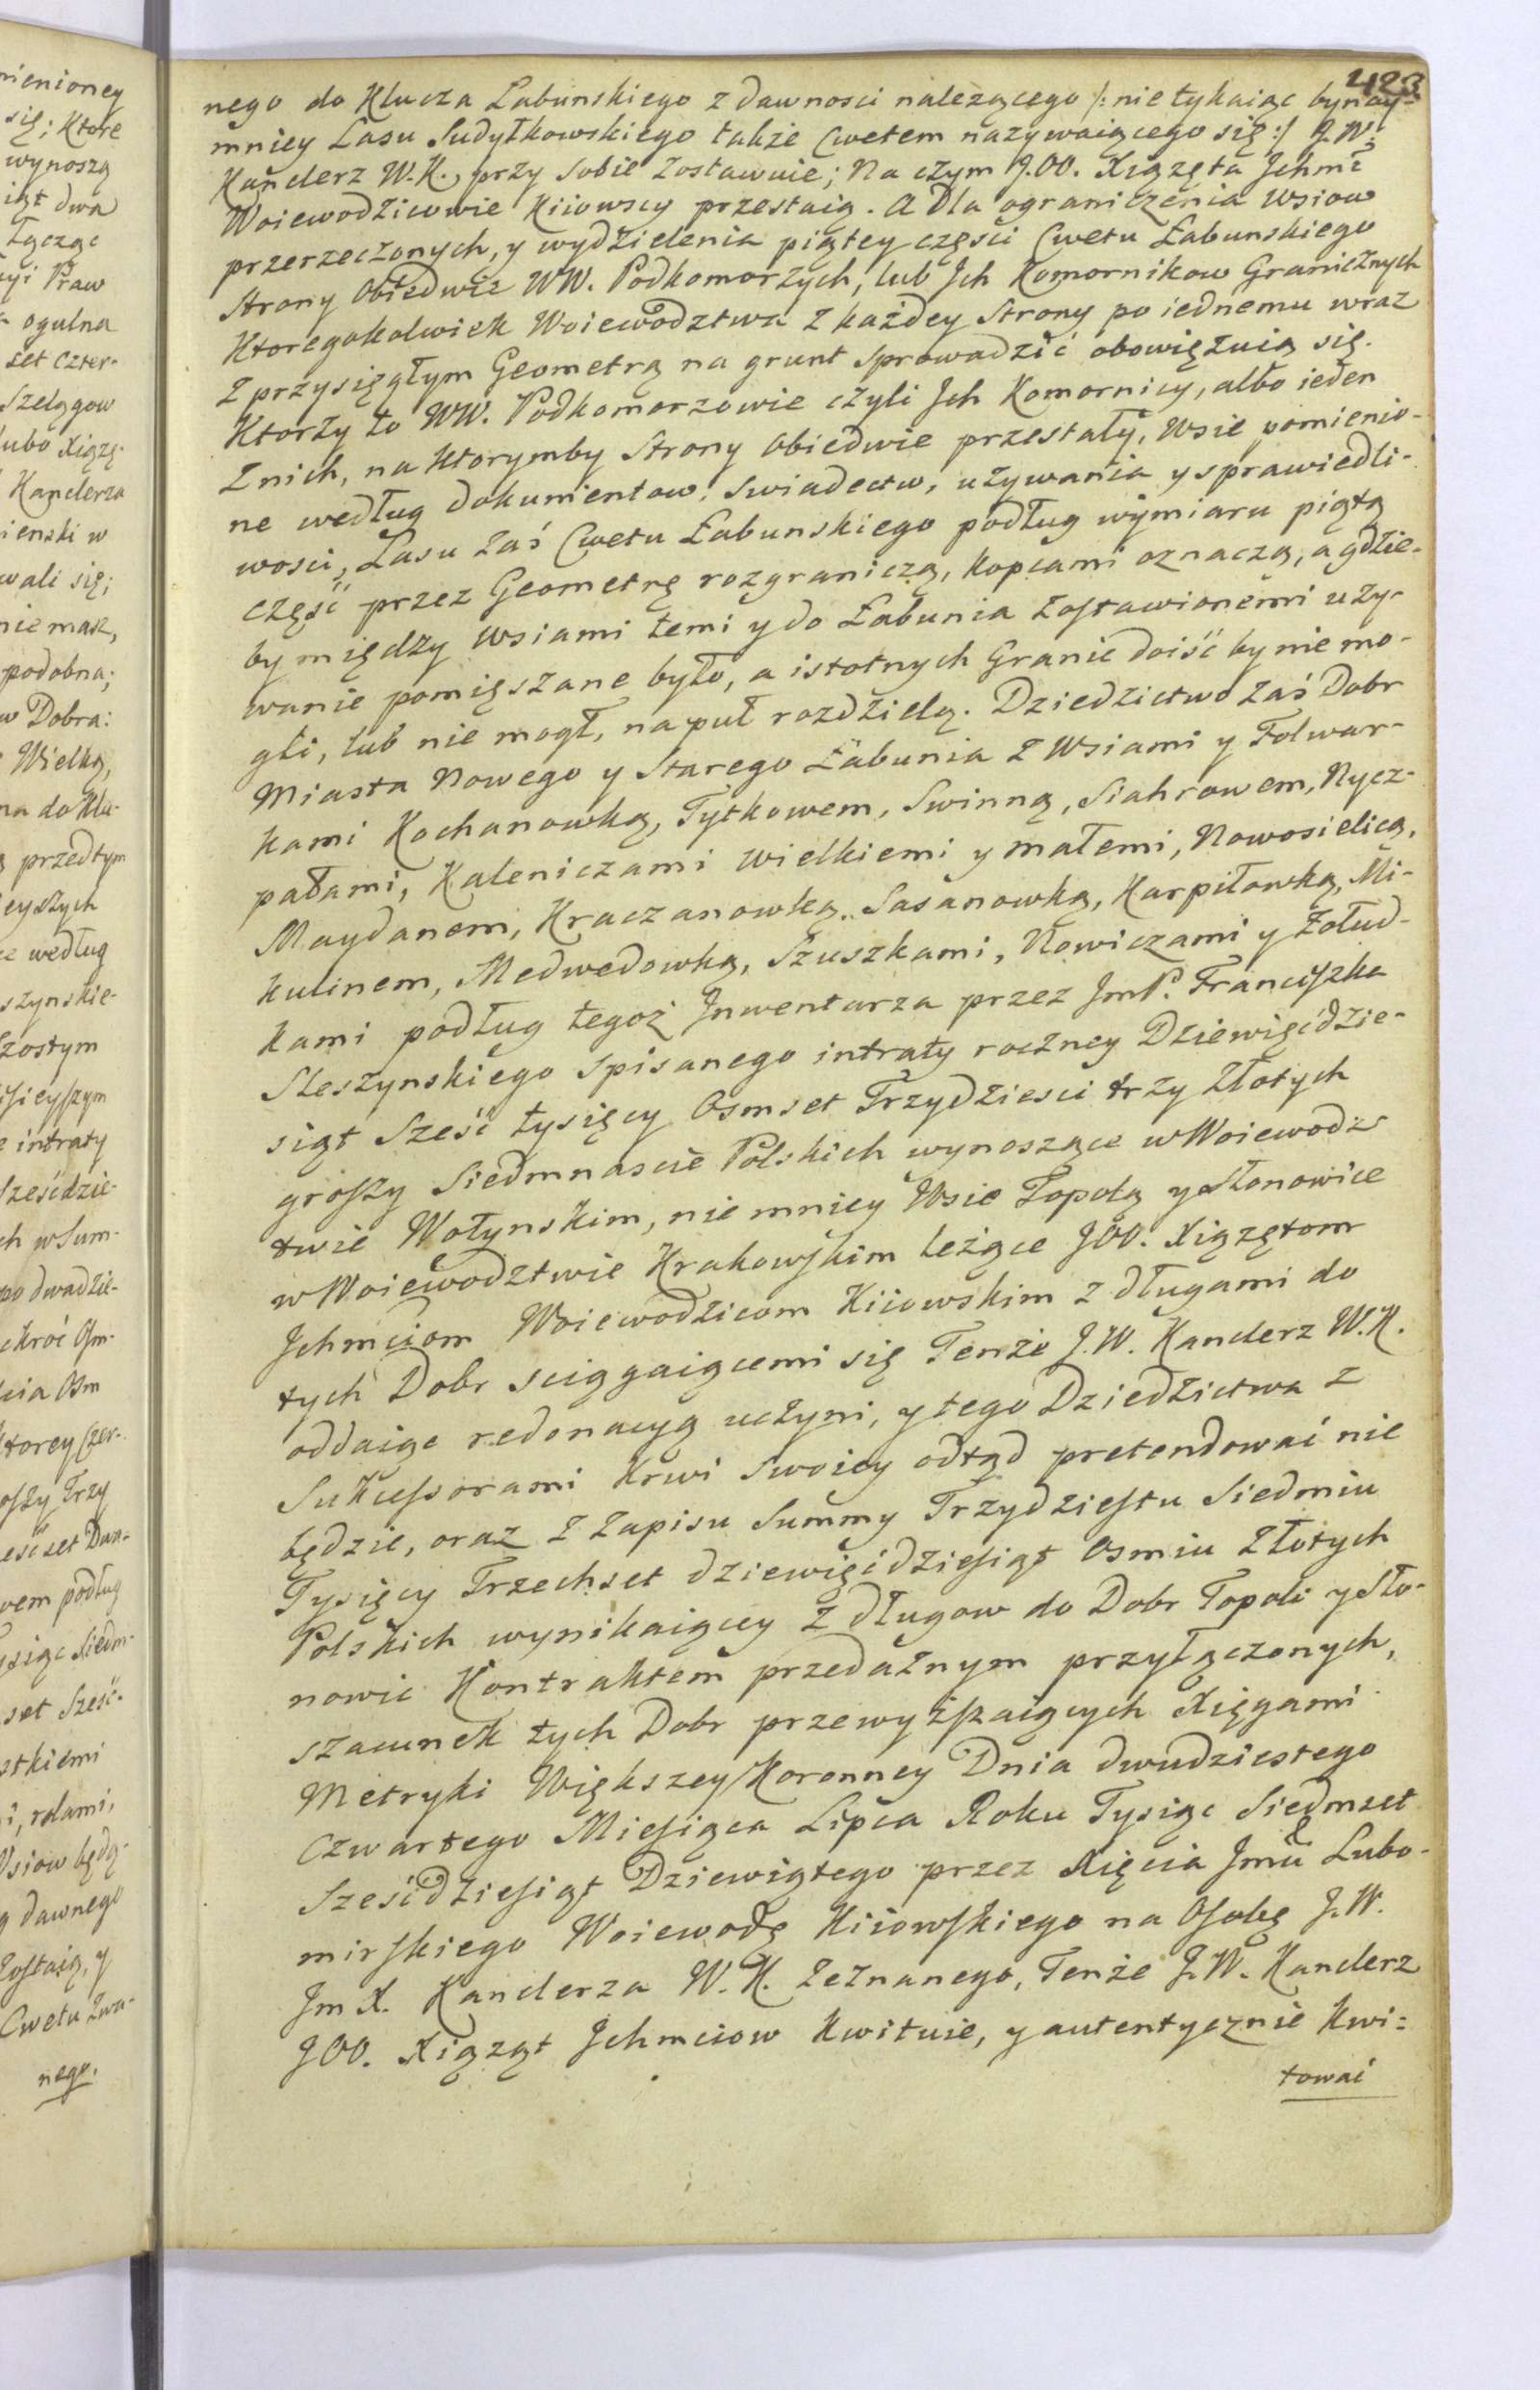 423
nego do Klucza Łabunskiego z dawnosci należącego /: nie tykaiąc bynay-
mniey Lasu Sudyłkowskiego także Cwetem nazywaiącego się :/ J.W.
Kanclerz W.K. przy sobie zostawuie; Na czym J.OO. Xiążęta Jchmć
Woiewodzicowie Kiiowscy przestaią. A Dla ograniczenia wsiow
przerzeczonych, y wydzielenia piątey części Cwetu Łabunskiego
Strony Obiedwie WW. Podkomorzych, lub Jch Komornikow Granicznych
Ktoregokolwiek Woiewodztwa z każdey Strony po iednemu wraz
z przysięgłym Geometrą na grunt sprowadzić obowięzuią się.
Ktorzy to WW. Podkomorzowie czyli Jch Komornicy, albo ieden
z nich, na Ktorymby Strony Obiedwie przestały, wsie pomienio-
ne według dokumentow, swiadectw, używania y sprawiedli-
wosci, Lasu zaś Cwetu Łabunskiego podług wymiaru piątą
część przez Geometrę rozgraniczą, Kopcami oznaczą, a gdzie-
by między wsiami temi y do Łabunia zostawionemi uży-
wanie pomięszane było, a istotnych Granic doiść by nie mo-
gli, lub nie mogł, na puł rozdzielą. Dziedzictwo zaś Dobr
Miasta Nowego y Starego Łabunia z Wsiami y Folwar-
kami Kochanowką, Tytkowem, Swinną, Siahrowem, Nycz-
pałami, Kaleniczami wielkiemi y małemi, Nowosielicą,
Maydanem, Kraczanowką, Sasanowką, Karpiłowką, Mi-
kulinem, Medwedowką, Szuszkami, Nowiczami y Zołud-
kami podług tegoż Jnwentarza przez JmP. Franciszka
Sleszynskiego spisanego intraty roczney Dziewięćdzie-
siąt Sześć tysięcy Osmset Trzydziesci trzy Złotych
groszy Siedmnascie Polskich wynoszące w Woiewodz-
twie Wołynskim, nie mniey Wsie Topolą y Słonowice
w Woiewodztwie Krakowskim leżące JOO. Xiążętom
Jchmciom Woiewodzicom Kiiowskim z długami do
tych Dobr sciągaiącemi się Tenże J.W. Kanclerz W.K.
oddaiąc redonacyą uczyni, y tego Dziedzictwa z
Sukcessorami Krwi swoiey odtąd pretendować nie
będzie, oraz z zapisu Summy Trzydziestu Siedmiu
Tysięcy Trzechset dziewięćdziesiąt Osmiu Złotych
Polskich wynikaiącey z długow do Dobr Topoli y Sło-
nowic Kontraktem przedażnym przyłączonych,
szacunek tych Dobr przewyższaiących Xięgami
Metryki Większey Koronney Dnia dwudziestego
Czwartego Miesiąca Lipca Roku Tysiąc Siedmset
Sześćdziesiąt Dziewiątego przez Xięcia Jmći Lubo-
mirskiego Woiewodę Kiiowskiego na Osobę J.W.
Jm X. Kanclerza W.K. zeznanego, Tenże J.W. Kanclerz
JOO. Xiążąt Jchmciow Kwituie, y autentycznie Kwi-
tować